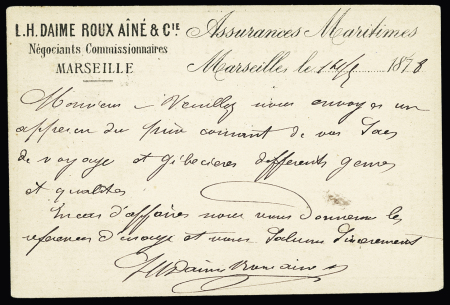 L.H. DAIME ROUX AÎNÉ & CIE
Négociants Commissionnaires
MARSEILLE
Assurances Maritimes
Marseilles le 1878
Monsieur – Veuillez nous envoyer un
appercu du prix courant de vos Sacs
de voyage et gibecières differents genres
et qualités
En cas d'affaires nous vous donnerons les
references d'usage et vous Saluons Sincèrement